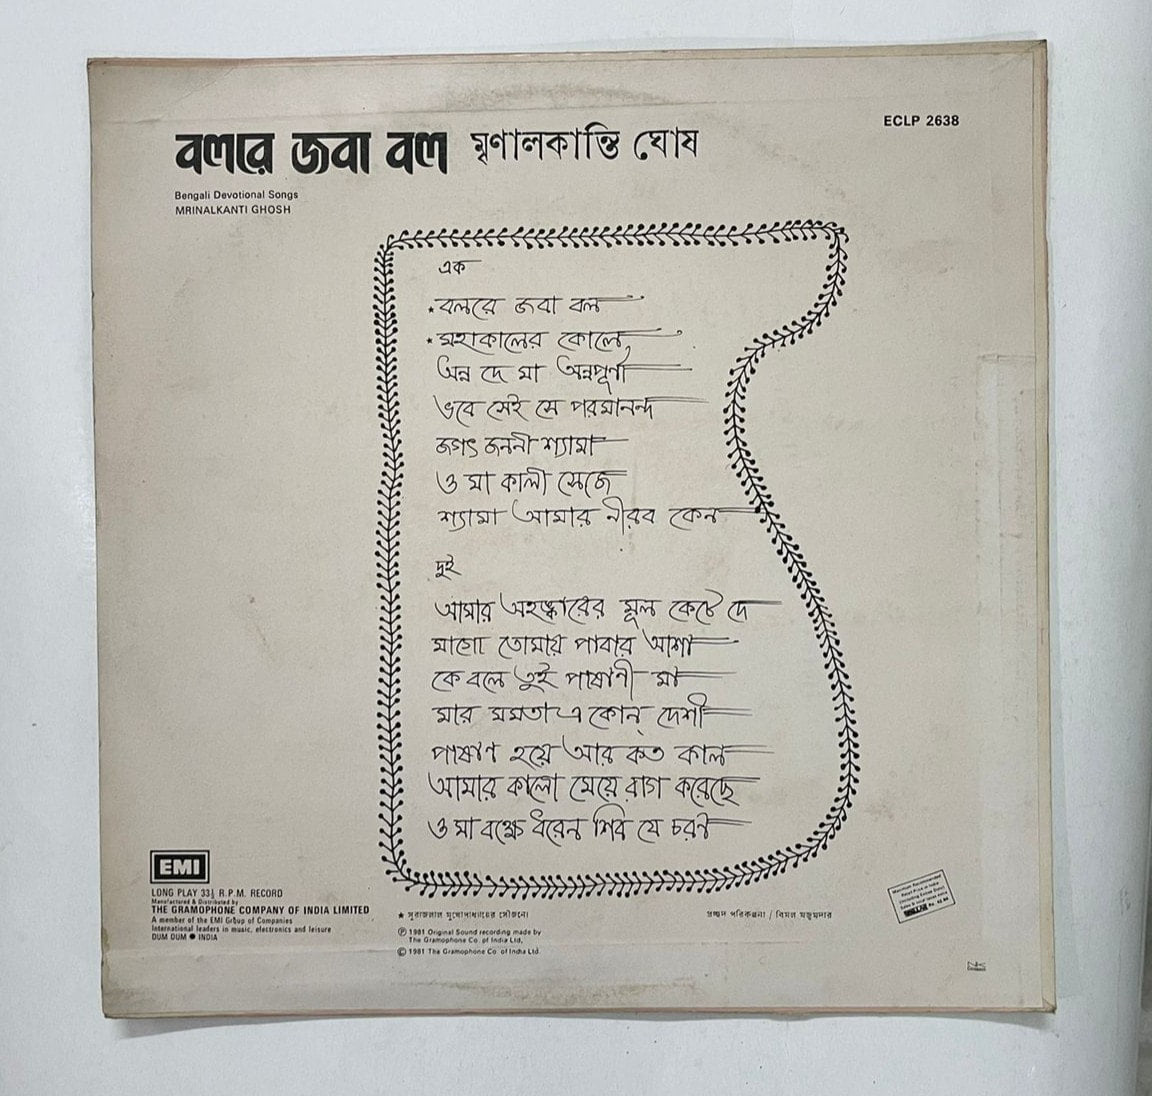 ECLP 2638
বলরে জবা বল মৃণালকান্তি ঘোষ
Bengali Devotional Songs
MRINALKANTI GHOSH
এক
★ বলরে জবা বল
★ মহাকালের কোলে
অন্ন দে মা অন্নপূর্ণা
ভবে সেই সে পরমানন্দ
জগৎ জননী শ্যামা
ও মা কালী সেজে
শ্যামা আমার নীরব কেন
দুই
আমার অহঙ্কারের মূল কেটে দে
মাগো তোমায় পাবার আশা
কে বলে তুই পাষাণী মা
মার মমতা এ কোন্ দেশী
পাষাণ হয়ে আর কত কাল
আমার কালো মেয়ে রাগ করেছে
ও মা বক্ষে ধরেন শিব যে চরণ
EMI
LONG PLAY 33⅓ R.P.M. RECORD
Manufactured & Distributed by
THE GRAMOPHONE COMPANY OF INDIA LIMITED
A member of the EMI Group of Companies
International leaders in music, electronics and leisure
DUM DUM ● INDIA
★ মুখোপাধ্যায়ের সৌজন্যে
Ⓟ 1981 Original Sound recording made by
The Gramophone Co. of India Ltd.
© 1981 The Gramophone Co. of India Ltd.
প্রচ্ছদ পরিকল্পনা / বিমল মজুমদার
Maximum Recommended
Retail Price in India